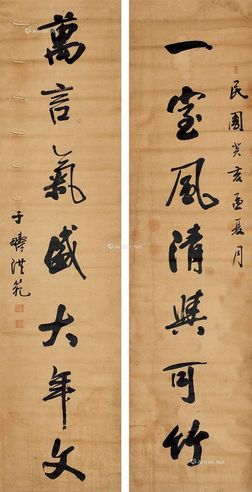 民國癸亥孟夏月
一室風清與可竹
萬言氣盛大年文
于疇洪範